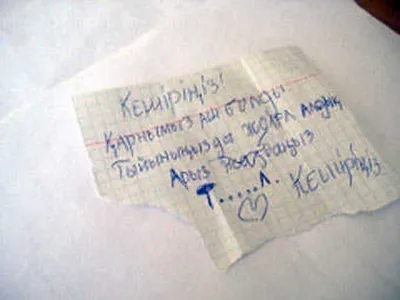 Кешіріңіз!
Қарнымыз аш болды
Тыйыныңызды жолға алдық
Арыз жазбаңыз
Т.....Л. Кешіріңіз